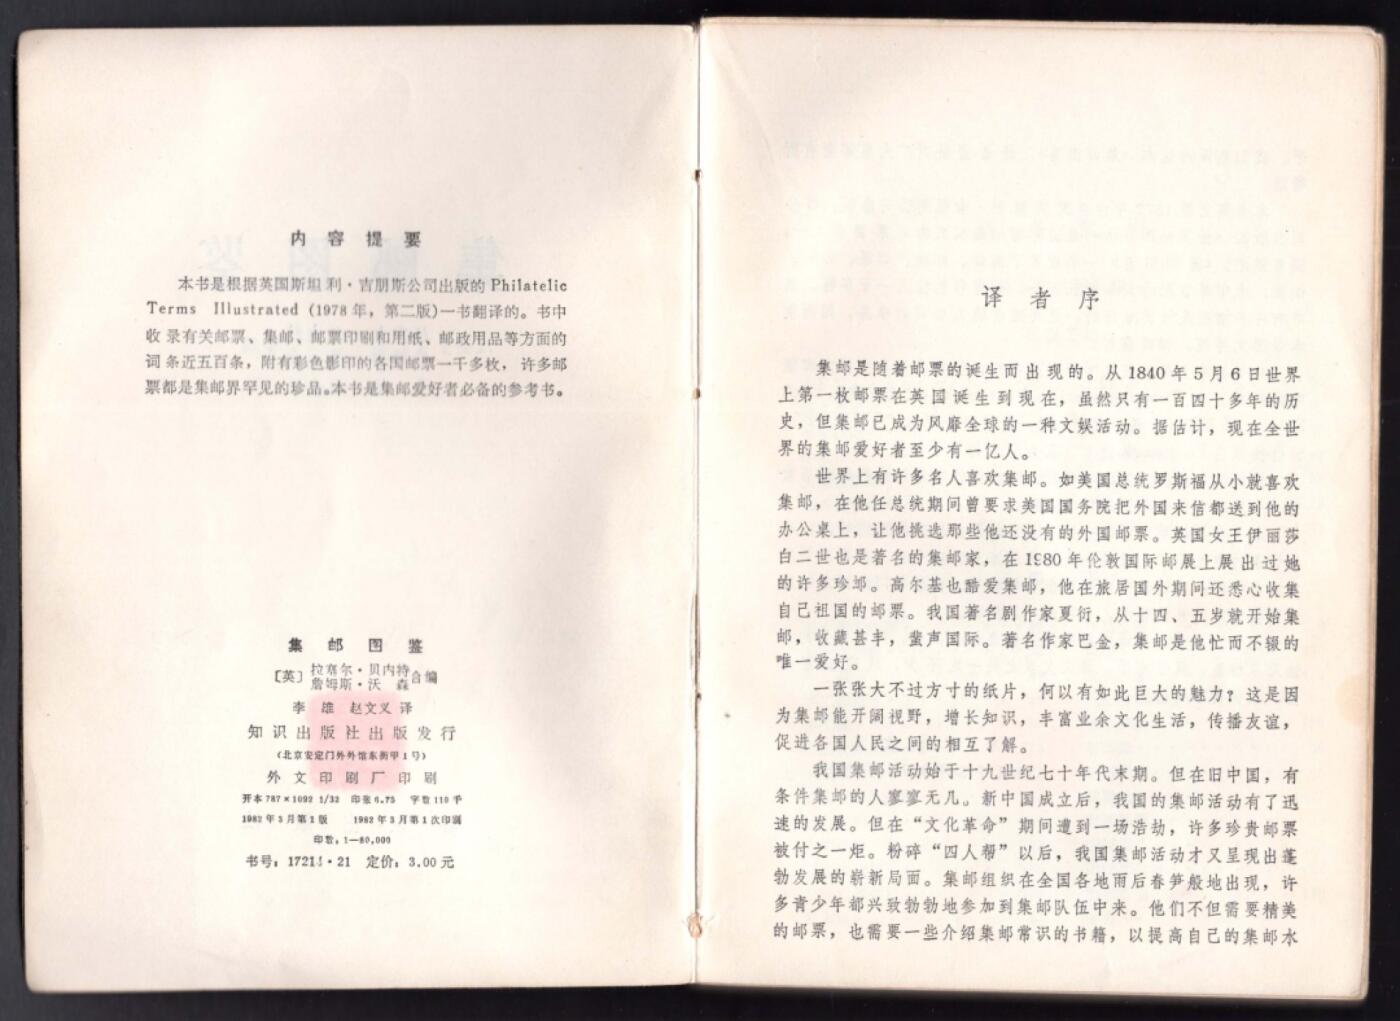 内容提要
本书是根据英国斯坦利·吉朋斯公司出版的 Philatelic
Terms Illustrated (1978 年，第二版)一书翻译的。书中
收录有关邮票、集邮、邮票印刷和用纸、邮政用品等方面的
词条近五百条，附有彩色影印的各国邮票一千多枚，许多邮
票都是集邮界罕见的珍品。本书是集邮爱好者必备的参考书。
集邮图鉴
〔英〕拉塞尔·贝内特
詹姆斯·沃森 合编
李雄 赵文义 译
知识出版社出版发行
(北京安定门外外馆东街甲1号)
外文印刷厂印刷
开本 787×1092 1/32 印张 6.75 字数 110 千
1982 年 3 月第 1 版 1982 年 3 月第 1 次印刷
印数：1—80,000
书号：17214·21 定价：3.00 元
译者序
集邮是随着邮票的诞生而出现的。从 1840 年 5 月 6 日世界
上第一枚邮票在英国诞生到现在，虽然只有一百四十多年的历
史，但集邮已成为风靡全球的一种文娱活动。据估计，现在全世
界的集邮爱好者至少有一亿人。
世界上有许多名人喜欢集邮。如美国总统罗斯福从小就喜欢
集邮，在他任总统期间曾要求美国国务院把外国来信都送到他的
办公桌上，让他挑选那些他还没有的外国邮票。英国女王伊丽莎
白二世也是著名的集邮家，在 1980 年伦敦国际邮展上展出过她
的许多珍邮。高尔基也酷爱集邮，他在旅居国外期间还悉心收集
自己祖国的邮票。我国著名剧作家夏衍，从十四、五岁就开始集
邮，收藏甚丰，蜚声国际。著名作家巴金，集邮是他忙而不辍的
唯一爱好。
一张张大不过方寸的纸片，何以有如此巨大的魅力？这是因
为集邮能开阔视野，增长知识，丰富业余文化生活，传播友谊，
促进各国人民之间的相互了解。
我国集邮活动始于十九世纪七十年代末期。但在旧中国，有
条件集邮的人寥寥无几。新中国成立后，我国的集邮活动有了迅
速的发展。但在“文化革命”期间遭到一场浩劫，许多珍贵邮票
被付之一炬。粉碎“四人帮”以后，我国集邮活动才又呈现出蓬
勃发展的崭新局面。集邮组织在全国各地雨后春笋般地出现，许
多青少年都兴致勃勃地参加到集邮队伍中来。他们不但需要精美
的邮票，也需要一些介绍集邮常识的书籍，以提高自己的集邮水